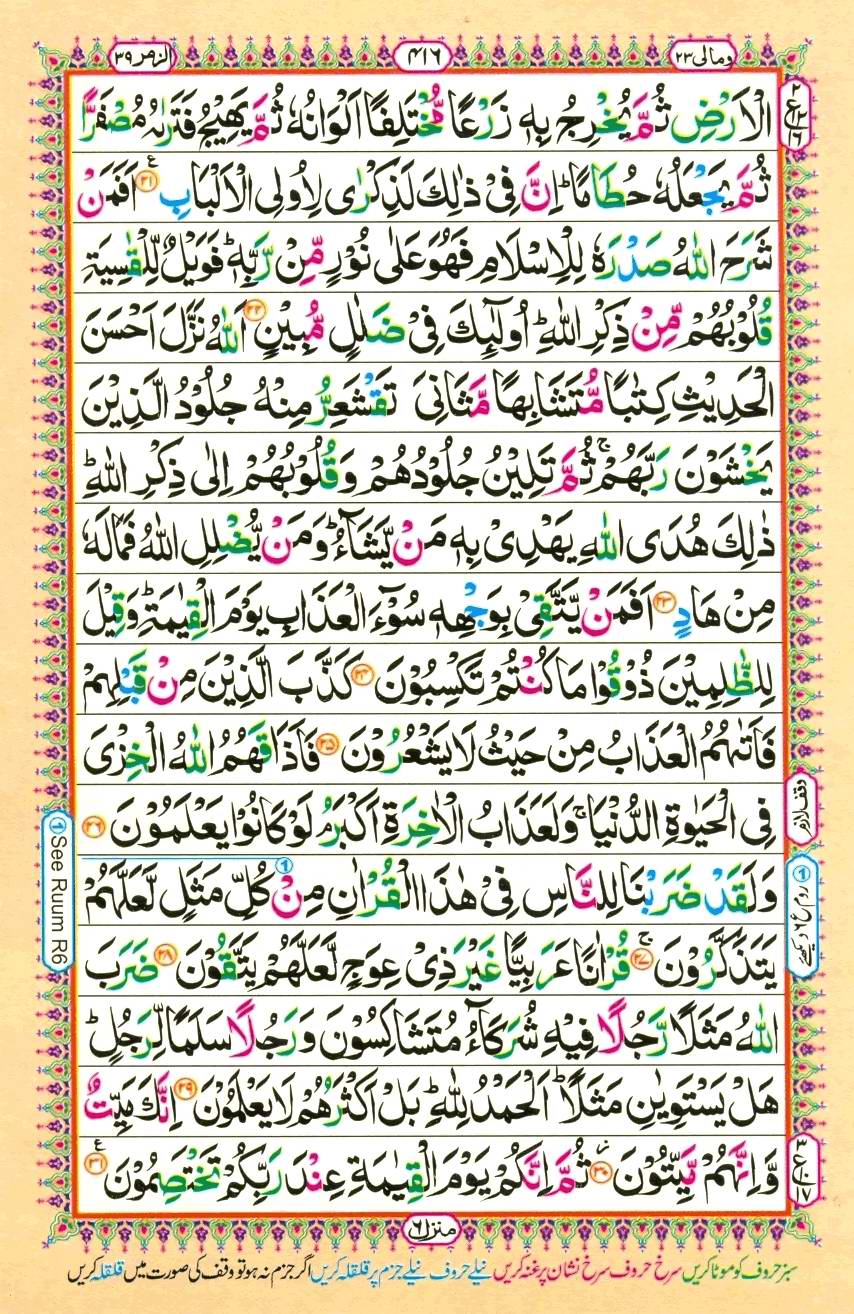 الزمر ۳۹
۴۱۶
ومالی ۲۳
الْاَرْضِ ثُمَّ یُخْرِجُ بِهٖ زَرْعًا مُّخْتَلِفًا اَلْوَانُهٗ ثُمَّ یَهِیْجُ فَتَرٰىهُ مُصْفَرًّا
ثُمَّ یَجْعَلُهٗ حُطَامًا ؕ اِنَّ فِیْ ذٰلِكَ لَذِكْرٰی لِاُولِی الْاَلْبَابِ ۲۱ اَفَمَنْ
شَرَحَ اللّٰهُ صَدْرَهٗ لِلْاِسْلَامِ فَهُوَ عَلٰی نُوْرٍ مِّنْ رَّبِّهٖ ؕ فَوَیْلٌ لِّلْقٰسِیَةِ
قُلُوْبُهُمْ مِّنْ ذِكْرِ اللّٰهِ ؕ اُولٰٓىِٕكَ فِیْ ضَلٰلٍ مُّبِیْنٍ ۲۲ اَللّٰهُ نَزَّلَ اَحْسَنَ
الْحَدِیْثِ كِتٰبًا مُّتَشَابِهًا مَّثَانِیَ تَقْشَعِرُّ مِنْهُ جُلُوْدُ الَّذِیْنَ
یَخْشَوْنَ رَبَّهُمْ ۚ ثُمَّ تَلِیْنُ جُلُوْدُهُمْ وَقُلُوْبُهُمْ اِلٰی ذِكْرِ اللّٰهِ ؕ
ذٰلِكَ هُدَی اللّٰهِ یَهْدِیْ بِهٖ مَنْ یَّشَآءُ ؕ وَمَنْ یُّضْلِلِ اللّٰهُ فَمَا لَهٗ
مِنْ هَادٍ ۲۳ اَفَمَنْ یَّتَّقِیْ بِوَجْهِهٖ سُوْٓءَ الْعَذَابِ یَوْمَ الْقِیٰمَةِ ؕ وَقِیْلَ
لِلظّٰلِمِیْنَ ذُوْقُوْا مَا كُنْتُمْ تَكْسِبُوْنَ ۲۴ كَذَّبَ الَّذِیْنَ مِنْ قَبْلِهِمْ
فَاَتٰىهُمُ الْعَذَابُ مِنْ حَیْثُ لَا یَشْعُرُوْنَ ۲۵ فَاَذَاقَهُمُ اللّٰهُ الْخِزْیَ
فِی الْحَیٰوةِ الدُّنْیَا ۚ وَلَعَذَابُ الْاٰخِرَةِ اَكْبَرُ ۘ لَوْ كَانُوْا یَعْلَمُوْنَ ۲۶
وَلَقَدْ ضَرَبْنَا لِلنَّاسِ فِیْ هٰذَا الْقُرْاٰنِ مِنْ كُلِّ مَثَلٍ لَّعَلَّهُمْ
یَتَذَكَّرُوْنَ ۚ ۲۷ قُرْاٰنًا عَرَبِیًّا غَیْرَ ذِیْ عِوَجٍ لَّعَلَّهُمْ یَتَّقُوْنَ ۲۸ ضَرَبَ
اللّٰهُ مَثَلًا رَّجُلًا فِیْهِ شُرَكَآءُ مُتَشَاكِسُوْنَ وَرَجُلًا سَلَمًا لِّرَجُلٍ ؕ
هَلْ یَسْتَوِیٰنِ مَثَلًا ؕ اَلْحَمْدُ لِلّٰهِ ؕ بَلْ اَكْثَرُهُمْ لَا یَعْلَمُوْنَ ۲۹ اِنَّكَ مَیِّتٌ
وَّاِنَّهُمْ مَّیِّتُوْنَ ۳۰ ثُمَّ اِنَّكُمْ یَوْمَ الْقِیٰمَةِ عِنْدَ رَبِّكُمْ تَخْتَصِمُوْنَ ۳۱
۲ ع ۱۲ ۱۶
وقف لازم
① روم ع ۶ دیکھئے
۳ ع ۱۰ ۱۷
① See Ruum R6
منزل ۶
سبز حروف کو موٹا کریں سرخ حروف سرخ نشان پر غنہ کریں نیلے حروف نیلے جزم پر قلقلہ کریں اگر جزم نہ ہو تو وقف کی صورت میں قلقلہ کریں